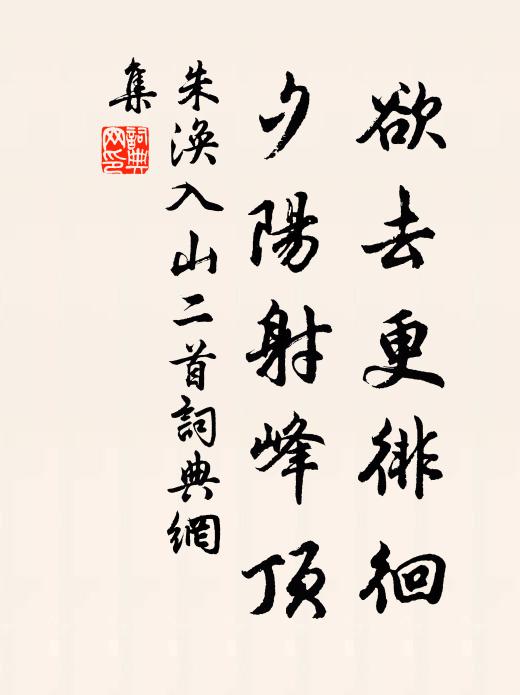 欲去更徘徊
夕陽射峰頂
朱渙入山二首詞典網
集
詞典網印